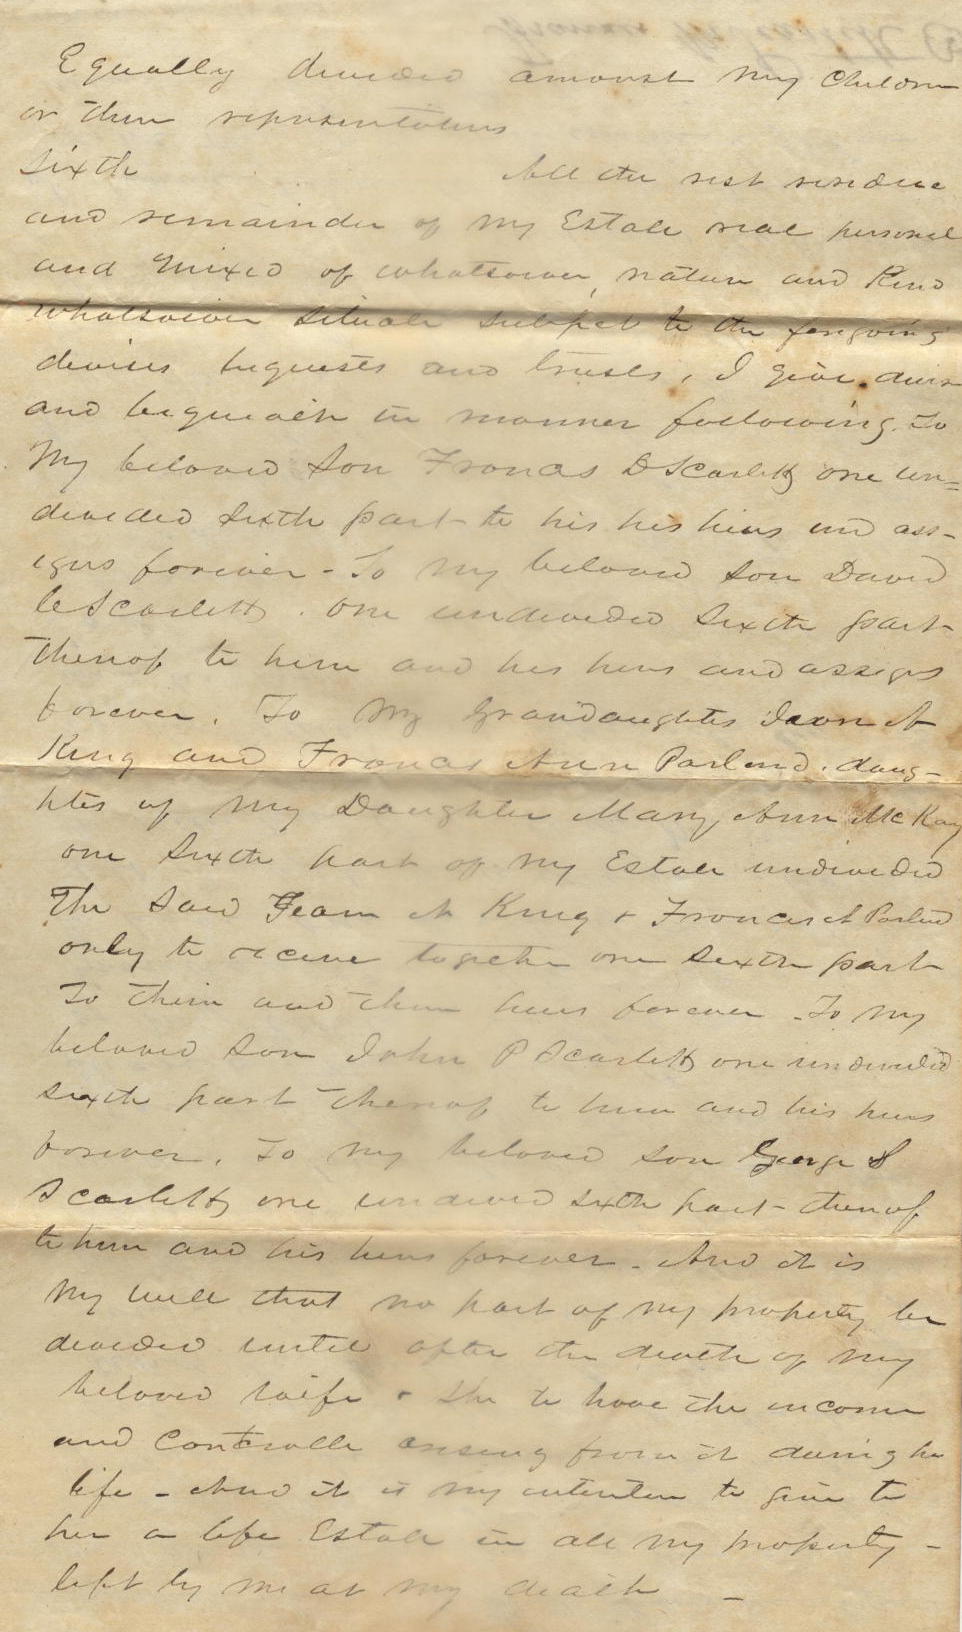 Equally divided amonst my Children
or their representatives
Sixth All the rest residue
and remainder of my Estate real personal
and mixed of whatsoever, nature and Kind
whatsoever situate subject to the foregoing
devises bequests and trusts, I give devise
and bequeath in manner following. To
My beloved Son Francis D Scarlett one un=
devided Sixth part to his his heirs and ass-
igns forever - To my beloved Son David
C Scarlett. one undevided Sixth part
thereof to him and his heirs and assigns
forever. To my Grandaughter Jean A
King and Frances Ann Parland. daug-
hter of my Daughter Mary Ann McKay
one Sixth part of my Estate undivided
The Said Jean A King & Frances A Parland
only to receive together one Sixth part
To them and their heirs forever - To my
beloved Son John P Scarlett one undevided
sixth part thereof to him and his heirs
forever. To my beloved son George S
Scarlett one undeved sixth part thereof
to him and his heirs forever - And it is
my will that no part of my property be
devided until after the death of my
beloved wife & she to have the income
and Controlle arising from it during her
life - And it is my intention to give to
her a life Estate in all my property -
left by me at my death -